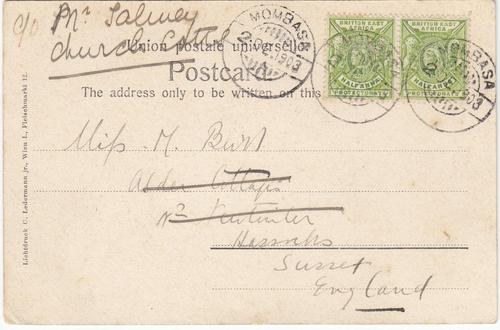 c/o Mr Salmey
Church Cottal
Union postale universelle
Postcard
The address only to be written on this
MOMBASA
1903
BRITISH EAST AFRICA
HALF ANNA
PROTECTORATE
BRITISH EAST AFRICA
HALF ANNA
PROTECTORATE
MOMBASA
1903
Miss M. Burt
Alder Cottage
Nr
Hassocks
Sussex
England
Lichtdruck C. Ledermann jr., Wien I., Fleischmarkt 12.